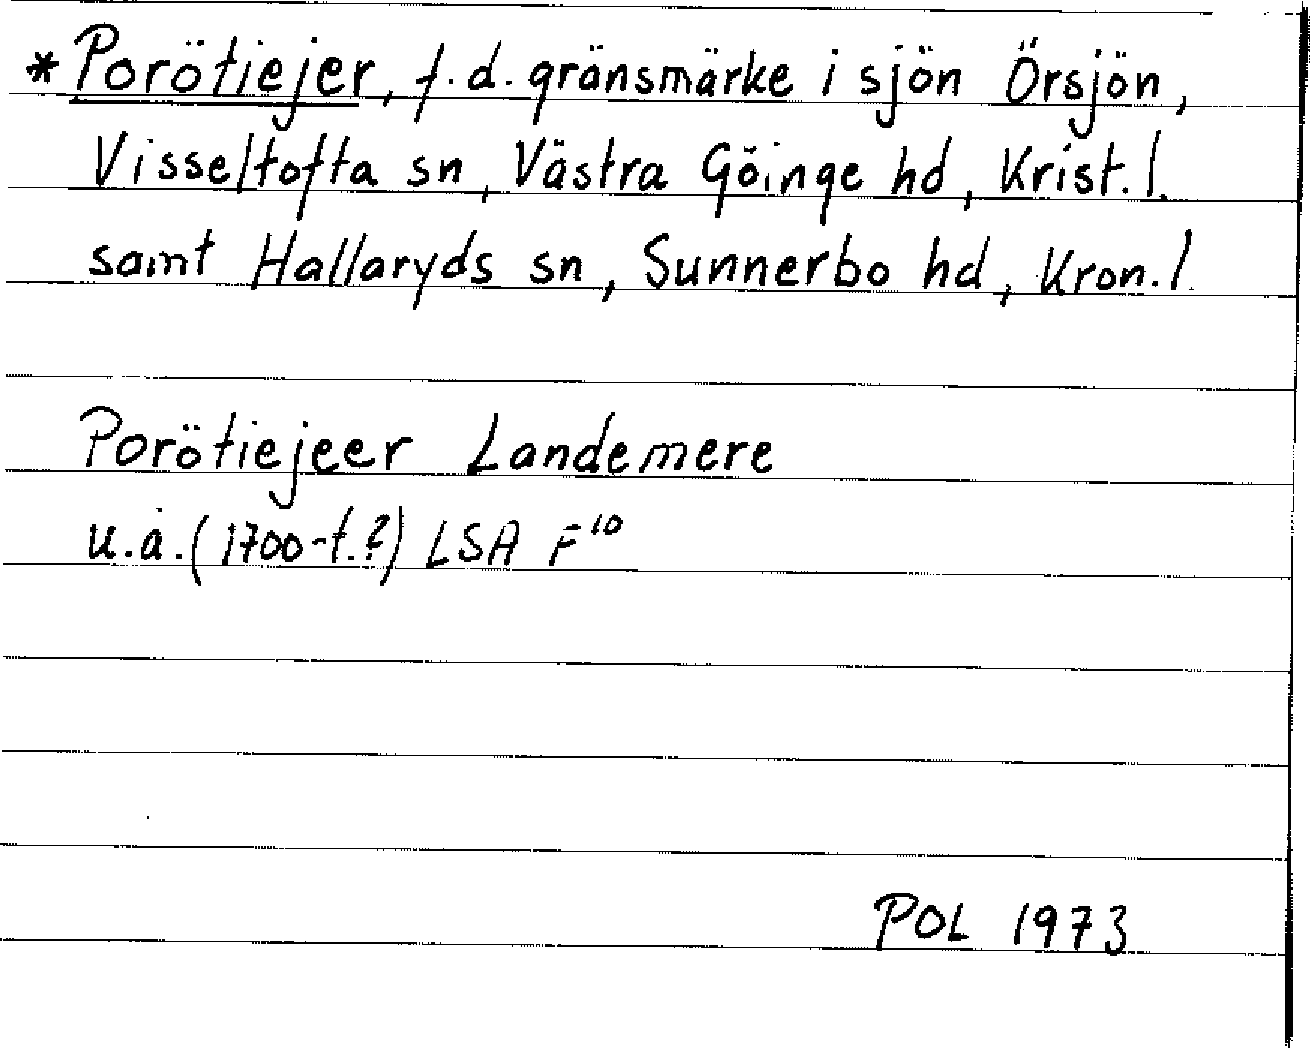 *Porötiejer, f.d. gränsmärke i sjön Örsjön,
Visseltofta sn, Västra Göinge hd, Krist. l.
samt Hallaryds sn, Sunnerbo hd, Kron. l.
Porötiejeer Landemere
u.å. (1700-t.?) LSA F¹⁰
POL 1973